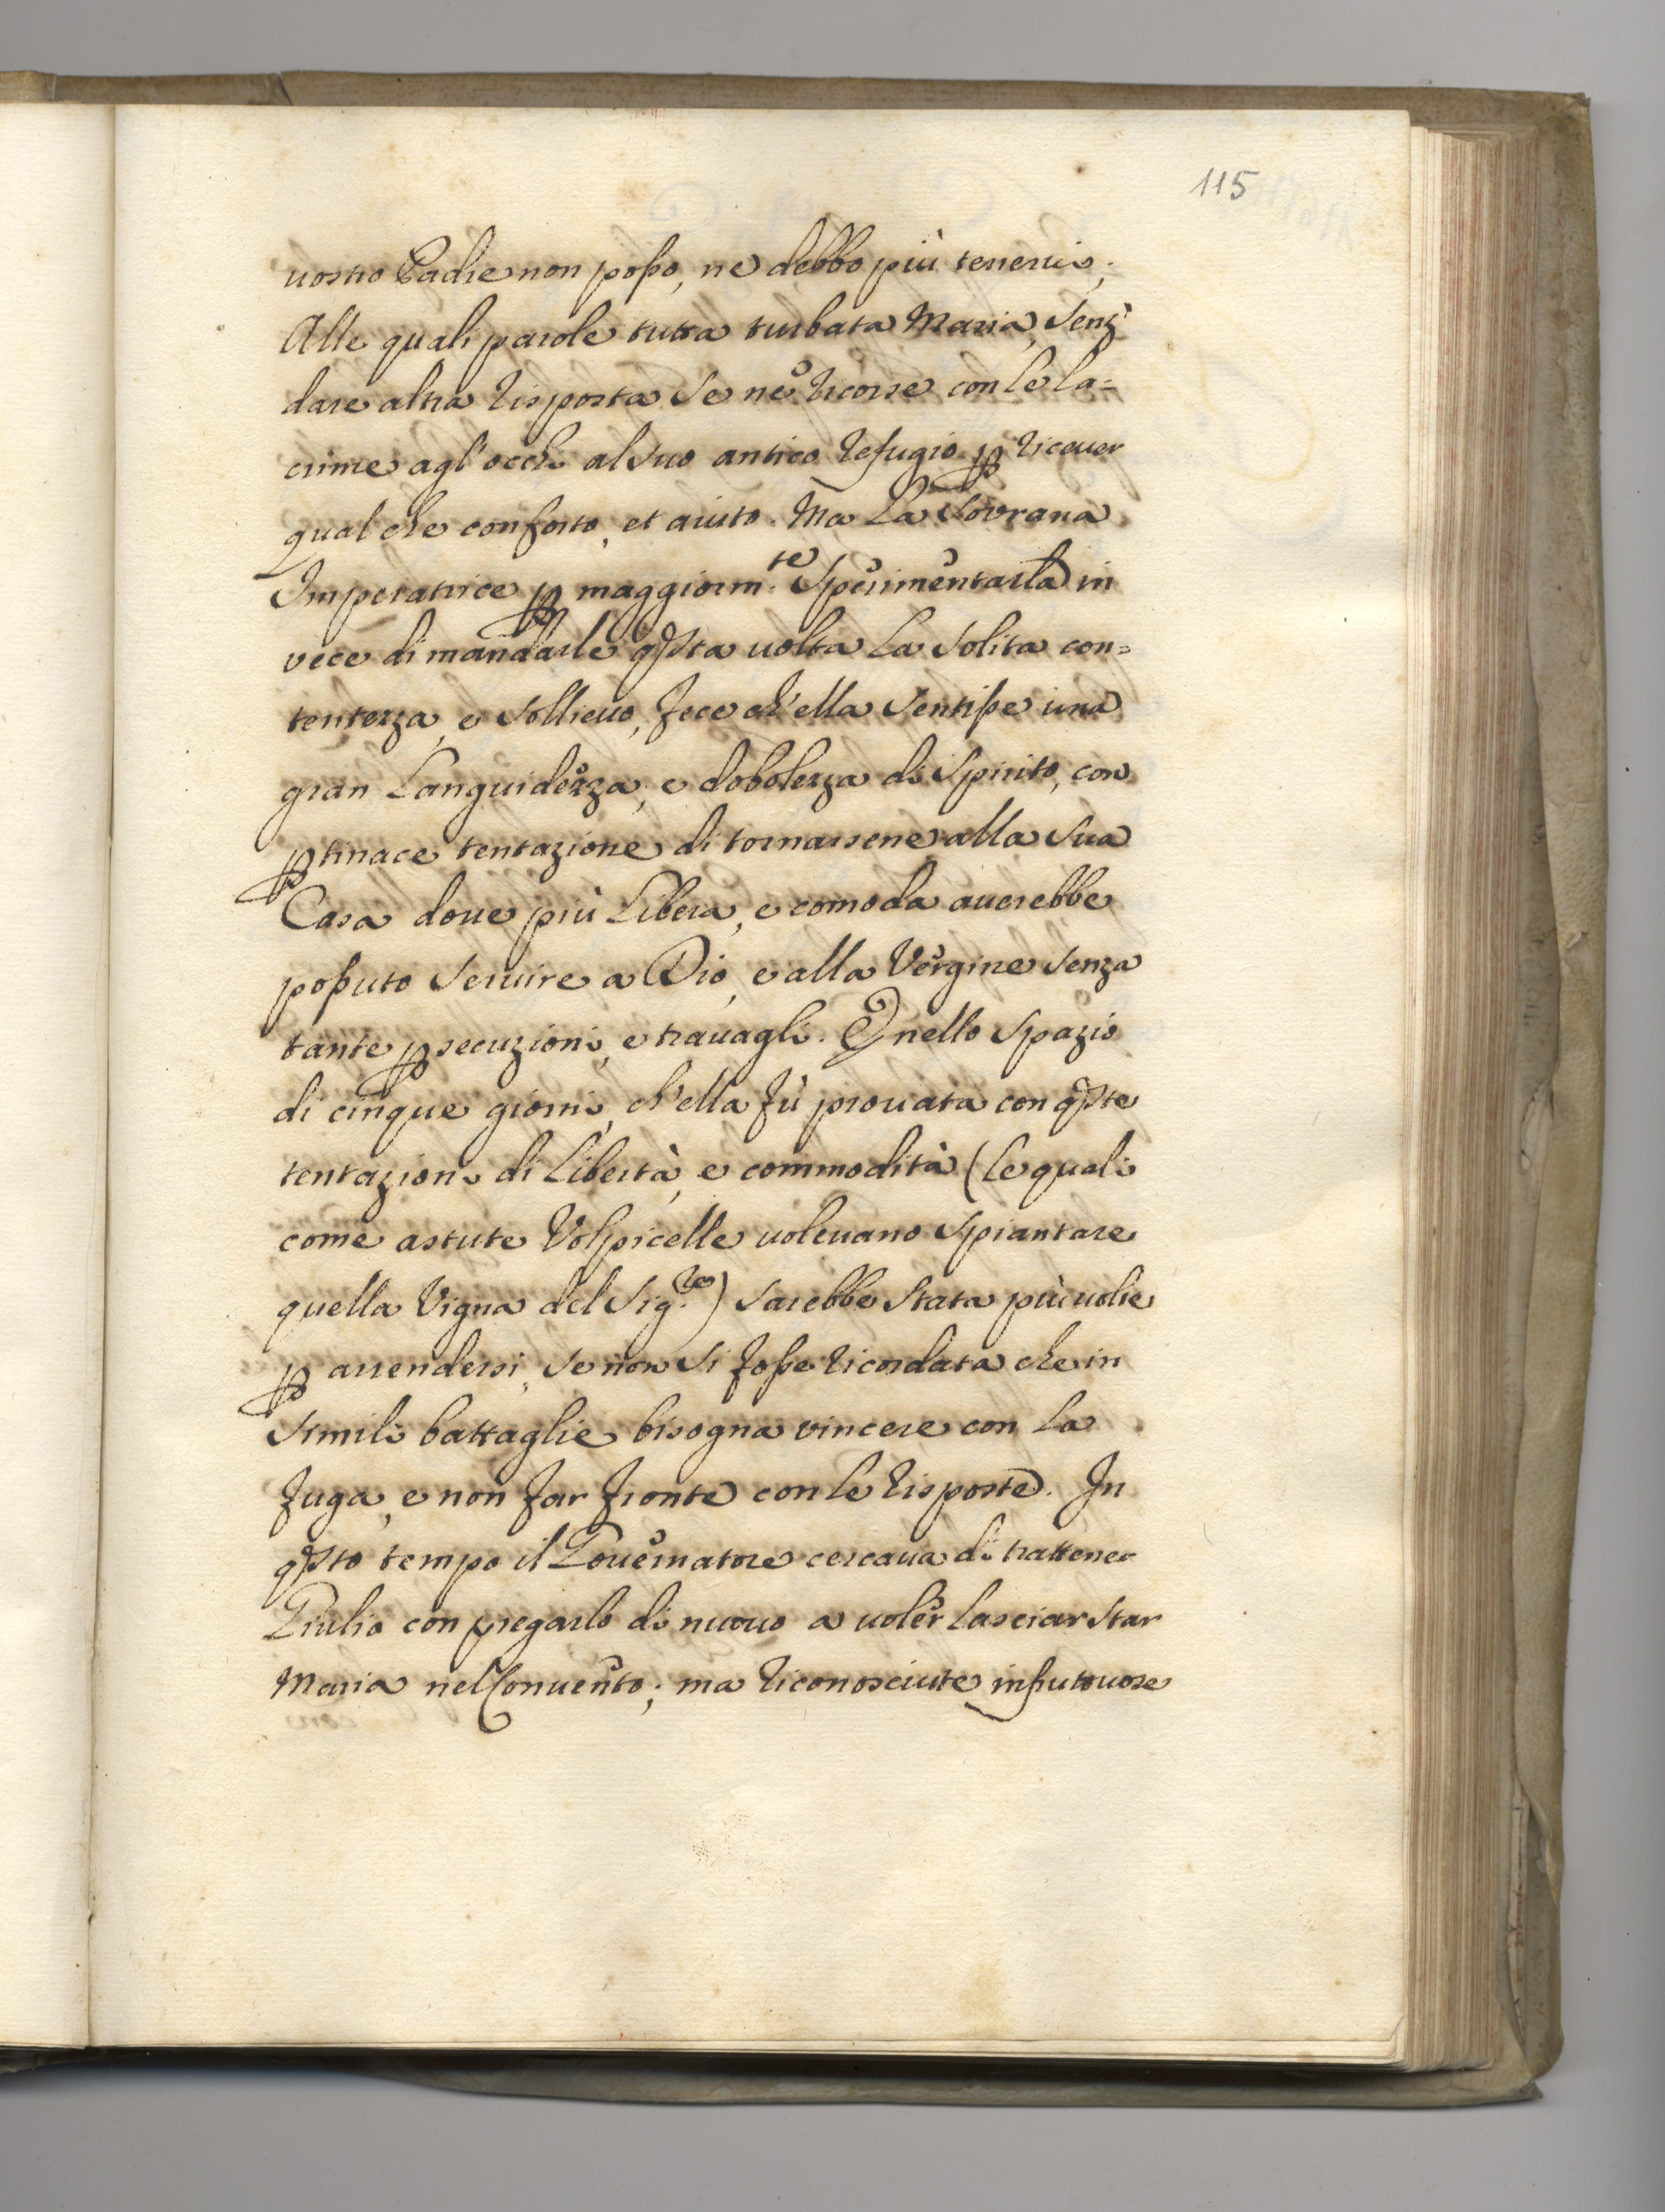 115
uostro Padre non posso, ne debbo più tenerui;
Alle quali parole tutta turbata Maria, senz'
dare altra risposta se ne ricorse con le la=
crime agl'occhi al suo antico refugio ꝑ riceuer
qual che conforto, et aiuto. Ma La Sovrana
Imperatrice ꝑ maggiorm.te sperimentarla in
vece di mandarle qsta uolta La solita con=
tentezza, e sollieuo, fece ch'ella sentisse una
gran Languidezza, e dobolezza di spirito, con
ꝑtinace tentazione di tornarsene alla sua
Casa doue più Libera, e comoda auerebbe
possuto seruire a Dio, e alla Vergine senza
tante ꝑsecuzioni, e trauagli. E nello spazio
di cinque giorni, ch'ella fù prouata con qste
tentazioni di Libertà, e commodità (le quali
come astute Volpicelle uoleuano spiantare
quella Vigna del Sig.re) sarebbe stata più uolte
ꝑ arrendersi, se non si fosse ricordata che in
simili battaglie bisogna vincere con la
fuga, e non far fronte con le risposte. In
qsto tempo il Gouernatore cercaua di trattener
Giulio con pregarlo di nuouo a uoler lasciar star
Maria nel Conuento; ma riconosciute infruttuose